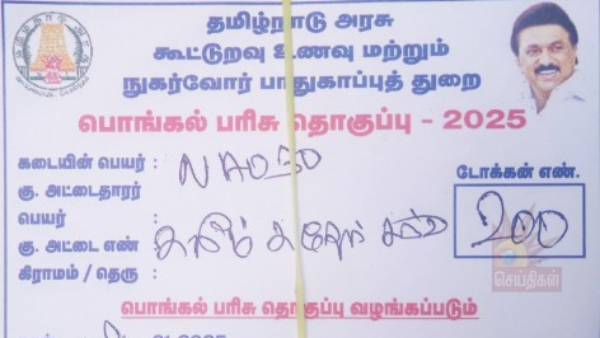 தமிழ்நாடு அரசு
கூட்டுறவு உணவு மற்றும்
நுகர்வோர் பாதுகாப்புத் துறை
பொங்கல் பரிசு தொகுப்பு - 2025
கடையின் பெயர் :
கு. அட்டைதாரர்
பெயர் :
கு. அட்டை எண்
கிராமம் / தெரு :
டோக்கன் எண்.
200
செய்திகள்
பொங்கல் பரிசு தொகுப்பு வழங்கப்படும்